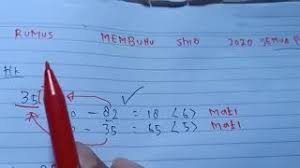 RUMUS MEMBUNU SHIO 2020 SEMUA P
HK
35 - 82 = 18 <6> MATI
- 35 = 65 <5> MATI